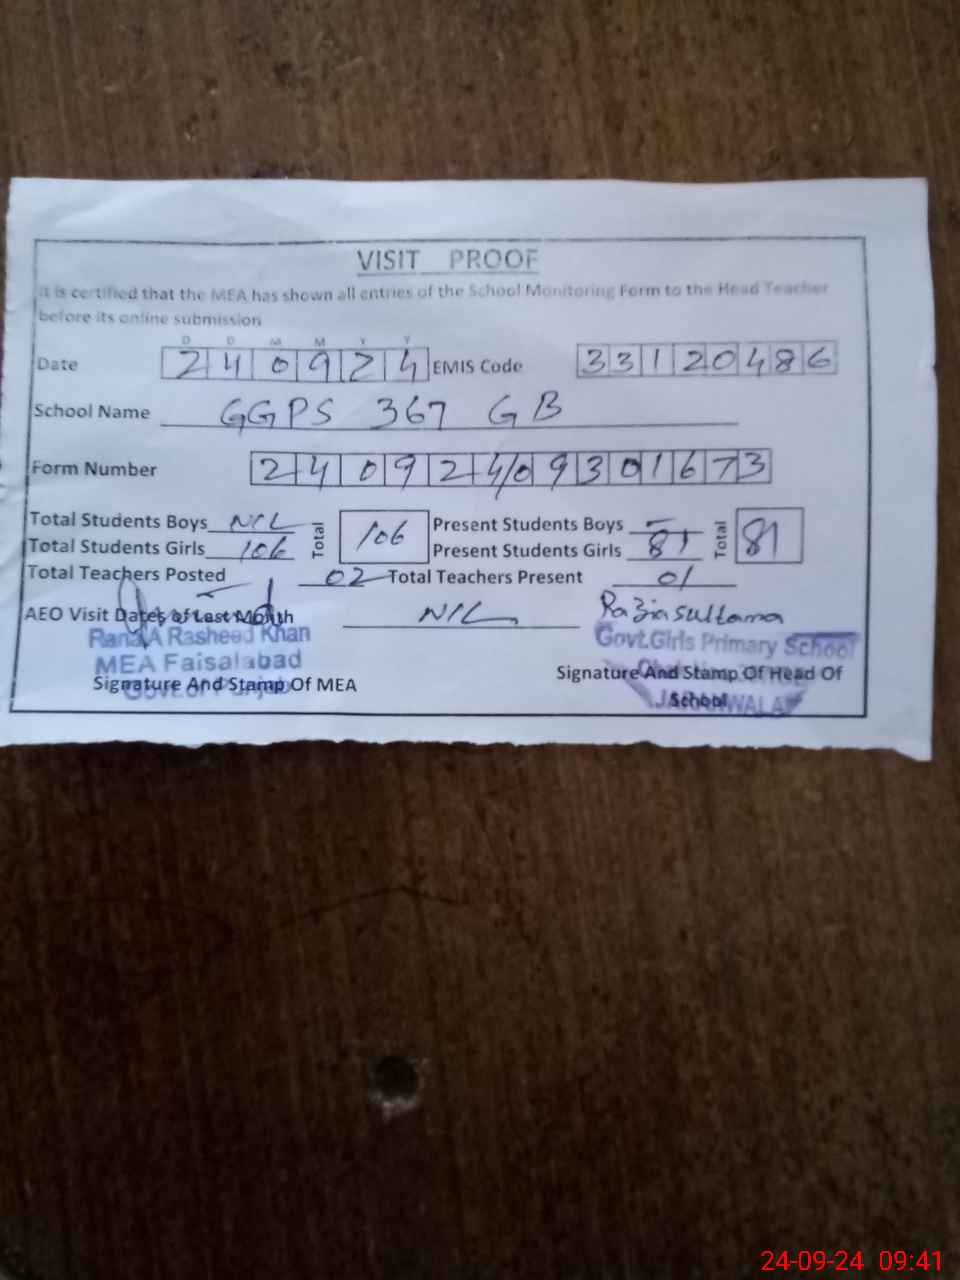 VISIT PROOF
It is certified that the MEA has shown all entries of the School Monitoring Form to the Head Teacher
before its online submission
D D M M Y Y
Date 240924 EMIS Code 33120486
School Name GGPS 367 GB
Form Number 24092409301673
Total Students Boys NIL Total 106 Present Students Boys — Total 81
Total Students Girls 106 Present Students Girls 81
Total Teachers Posted 02 Total Teachers Present 01
AEO Visit Dates of Last Month NIL Razia sultana
Rana A Rasheed Khan Govt.Girls Primary School
MEA Faisalabad
Signature And Stamp Of MEA Signature And Stamp Of Head Of
Govt. of Punjab School
24-09-24 09:41